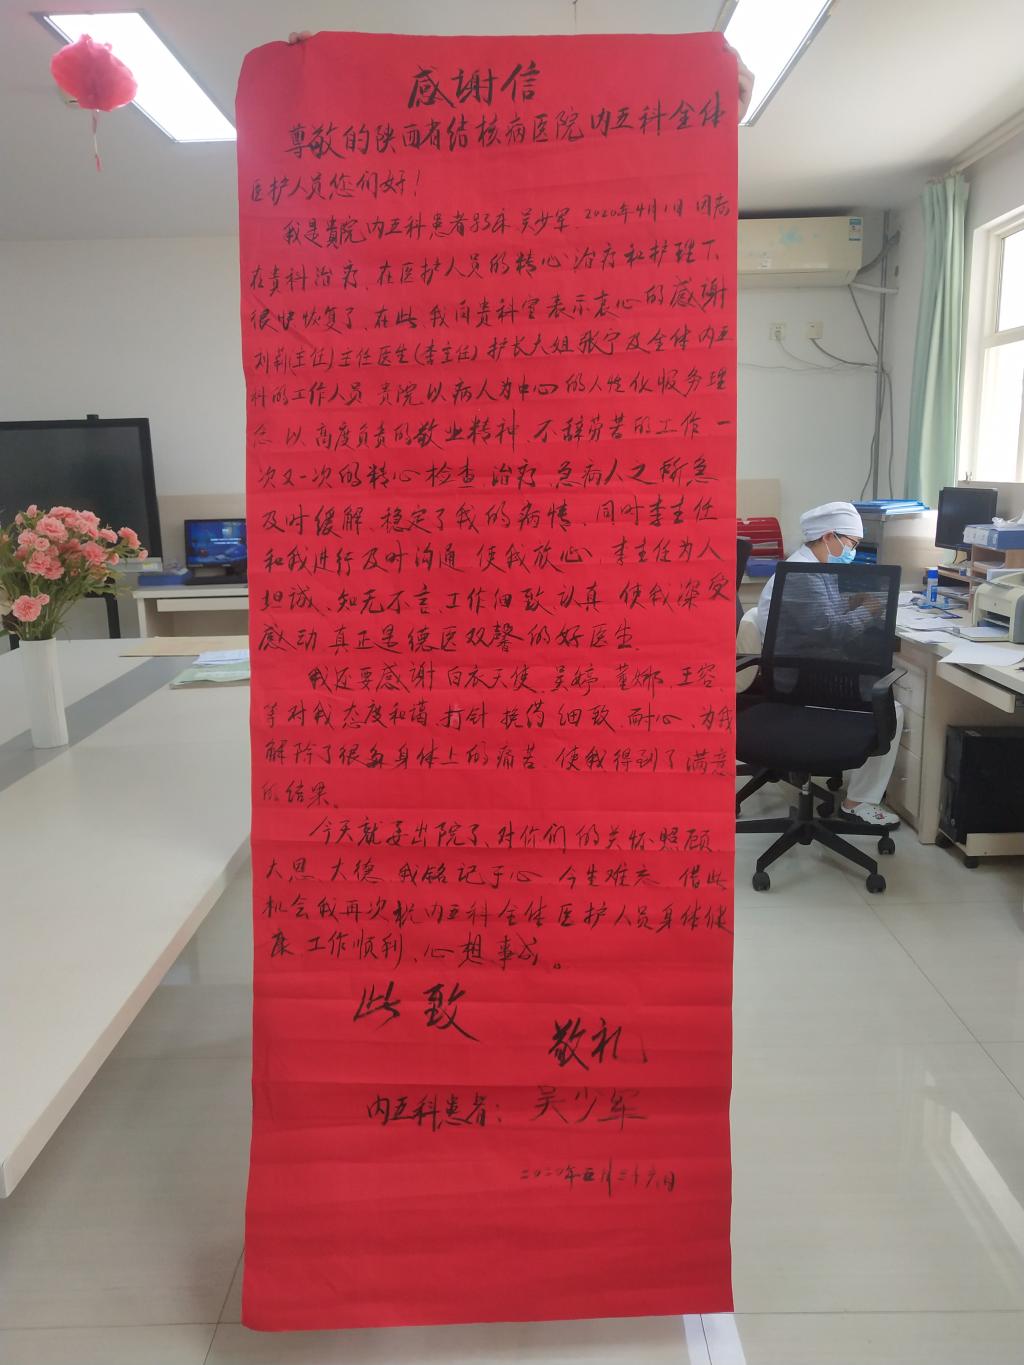 感谢信
尊敬的陕西省结核病医院内五科全体
医护人员您们好！
我是贵院内五科患者83床吴少军.2020年4月1日因病
在贵科治疗、在医护人员的精心治疗和护理下、
很快恢复了、在此我向贵科室表示衷心的感谢
刘莉(主任)主任医生(李主任)护长大姐张宁及全体内五
科的工作人员 贵院以病人为中心的人性化服务理
念 以高度负责的敬业精神、不辞劳苦的工作、一
次又一次的精心检查、治疗、急病人之所急
及时缓解、稳定了我的病情、同时李主任
和我进行及时沟通、使我放心、李主任为人
坦诚、知无不言、工作细致认真 使我深受
感动 真正是德医双馨的好医生.
我还要感谢白衣天使、吴婷、董娜、王容、
等对我态度和蔼、打针 换药 细致、耐心、为我
解除了很多身体上的痛苦、使我得到了满意
的结果。
今天就要出院了、对你们的关怀照顾、
大恩、大德、我铭记于心 今生难忘 借此
机会我再次祝内五科全体医护人员身体健
康、工作顺利、心想事成。
此致
敬礼
内五科患者：吴少军
二〇二〇年五月二十六日